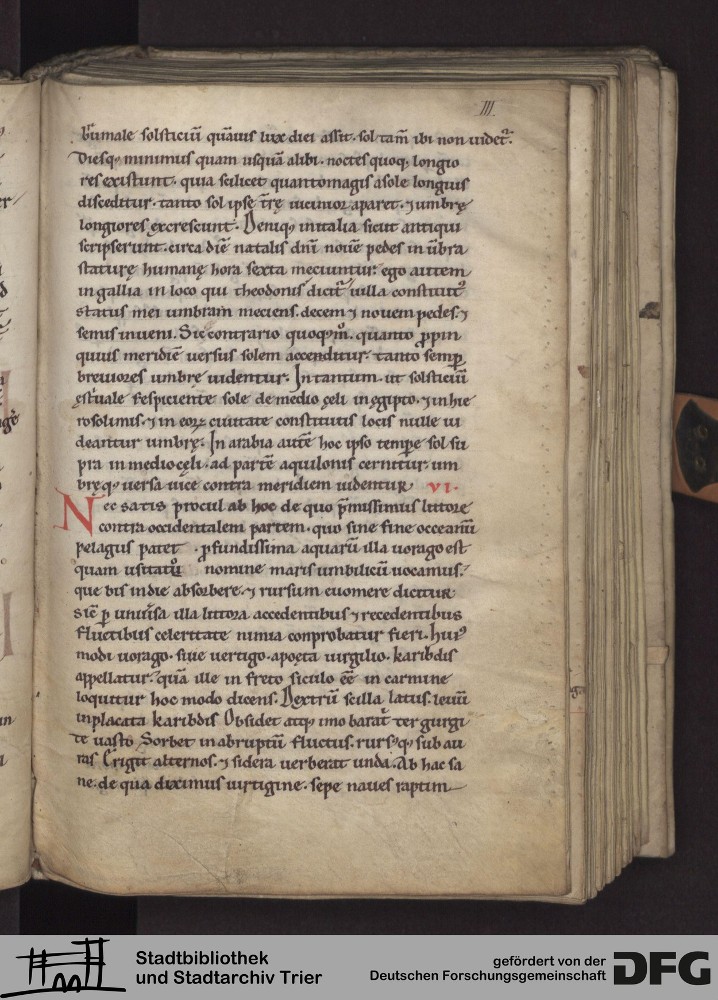 III.
brumale solsticiū quāuis lux diei assit. sol tam̄ ibi non uidet᷑.
Diesq; minimus quam usquā alibi. noctes quoq; longio
res existunt. quia scilicet quantomagis asole longius
disceditur. tanto sol ipse t̄rę uicinior aparet. ⁊ umbrę
longiores excrescunt. Deniq; initalia sicut antiqui
scripserunt. circa diē natalis dnī nouē pedes in ūbra
staturę humanę hora sexta meciuntur: ego autem
in gallia in loco qui theodonis dicit᷑ uilla constitutꝰ
status mei umbram meciens. decem ⁊ nouem pedes. ⁊
semis inueni. Sic contrario quoq; m̊. quanto ꝓpin
quius meridiē versus solem accenditur. tanto semꝑ
breuiores umbrę uidentur. In tantum. ut solsticiū
ęstiuale respiciente sole de medio cęli in egipto. ⁊ in hie
rosolimis. ⁊ in eoꝝ ciuitate constitutis locis nulle ui
deantur umbrę. In arabia autē hoc ipso tempore sol su
pra in mediocęli. ad partē aquilonis cernitur um
bręq; versa uice contra meridiem uidentur. VI.
Nec satis procul ab hoc de quo p̄missimus littore
contra occidentalem partem. quo sine fine occeanū
pelagus patet. ꝓfundissima aquarū illa uorago est
quam usitato nomine maris umbilicū uocamus.
que bis indie absorbere. ⁊ rursum euomere dicitur
sic̄ ꝑ uniūsa illa littora accedentibus ⁊ recedentibus
fluctibus celeritate nimia conprobatur fieri. huiꝰ
modi uorago. siue vertigo. apoeta uirgilio. karibdis
appellatur. quā ille in freto siculo eē in carmine
loquitur hoc modo dicens. Dextrū scilla latus. leuū
inplacata karibdis Obsidet atq; imo baratꝰ ter gurgi
te uasto Sorbet inabruptū fluctus. rursꝰq; sub au
ras Erigit alternos. ⁊ sidera uerberat unda. Ab hac sa
ne. de qua diximus uirtigine. sepe naues raptim
Stadtbibliothek
und Stadtarchiv Trier
gefördert von der
Deutschen Forschungsgemeinschaft
DFG